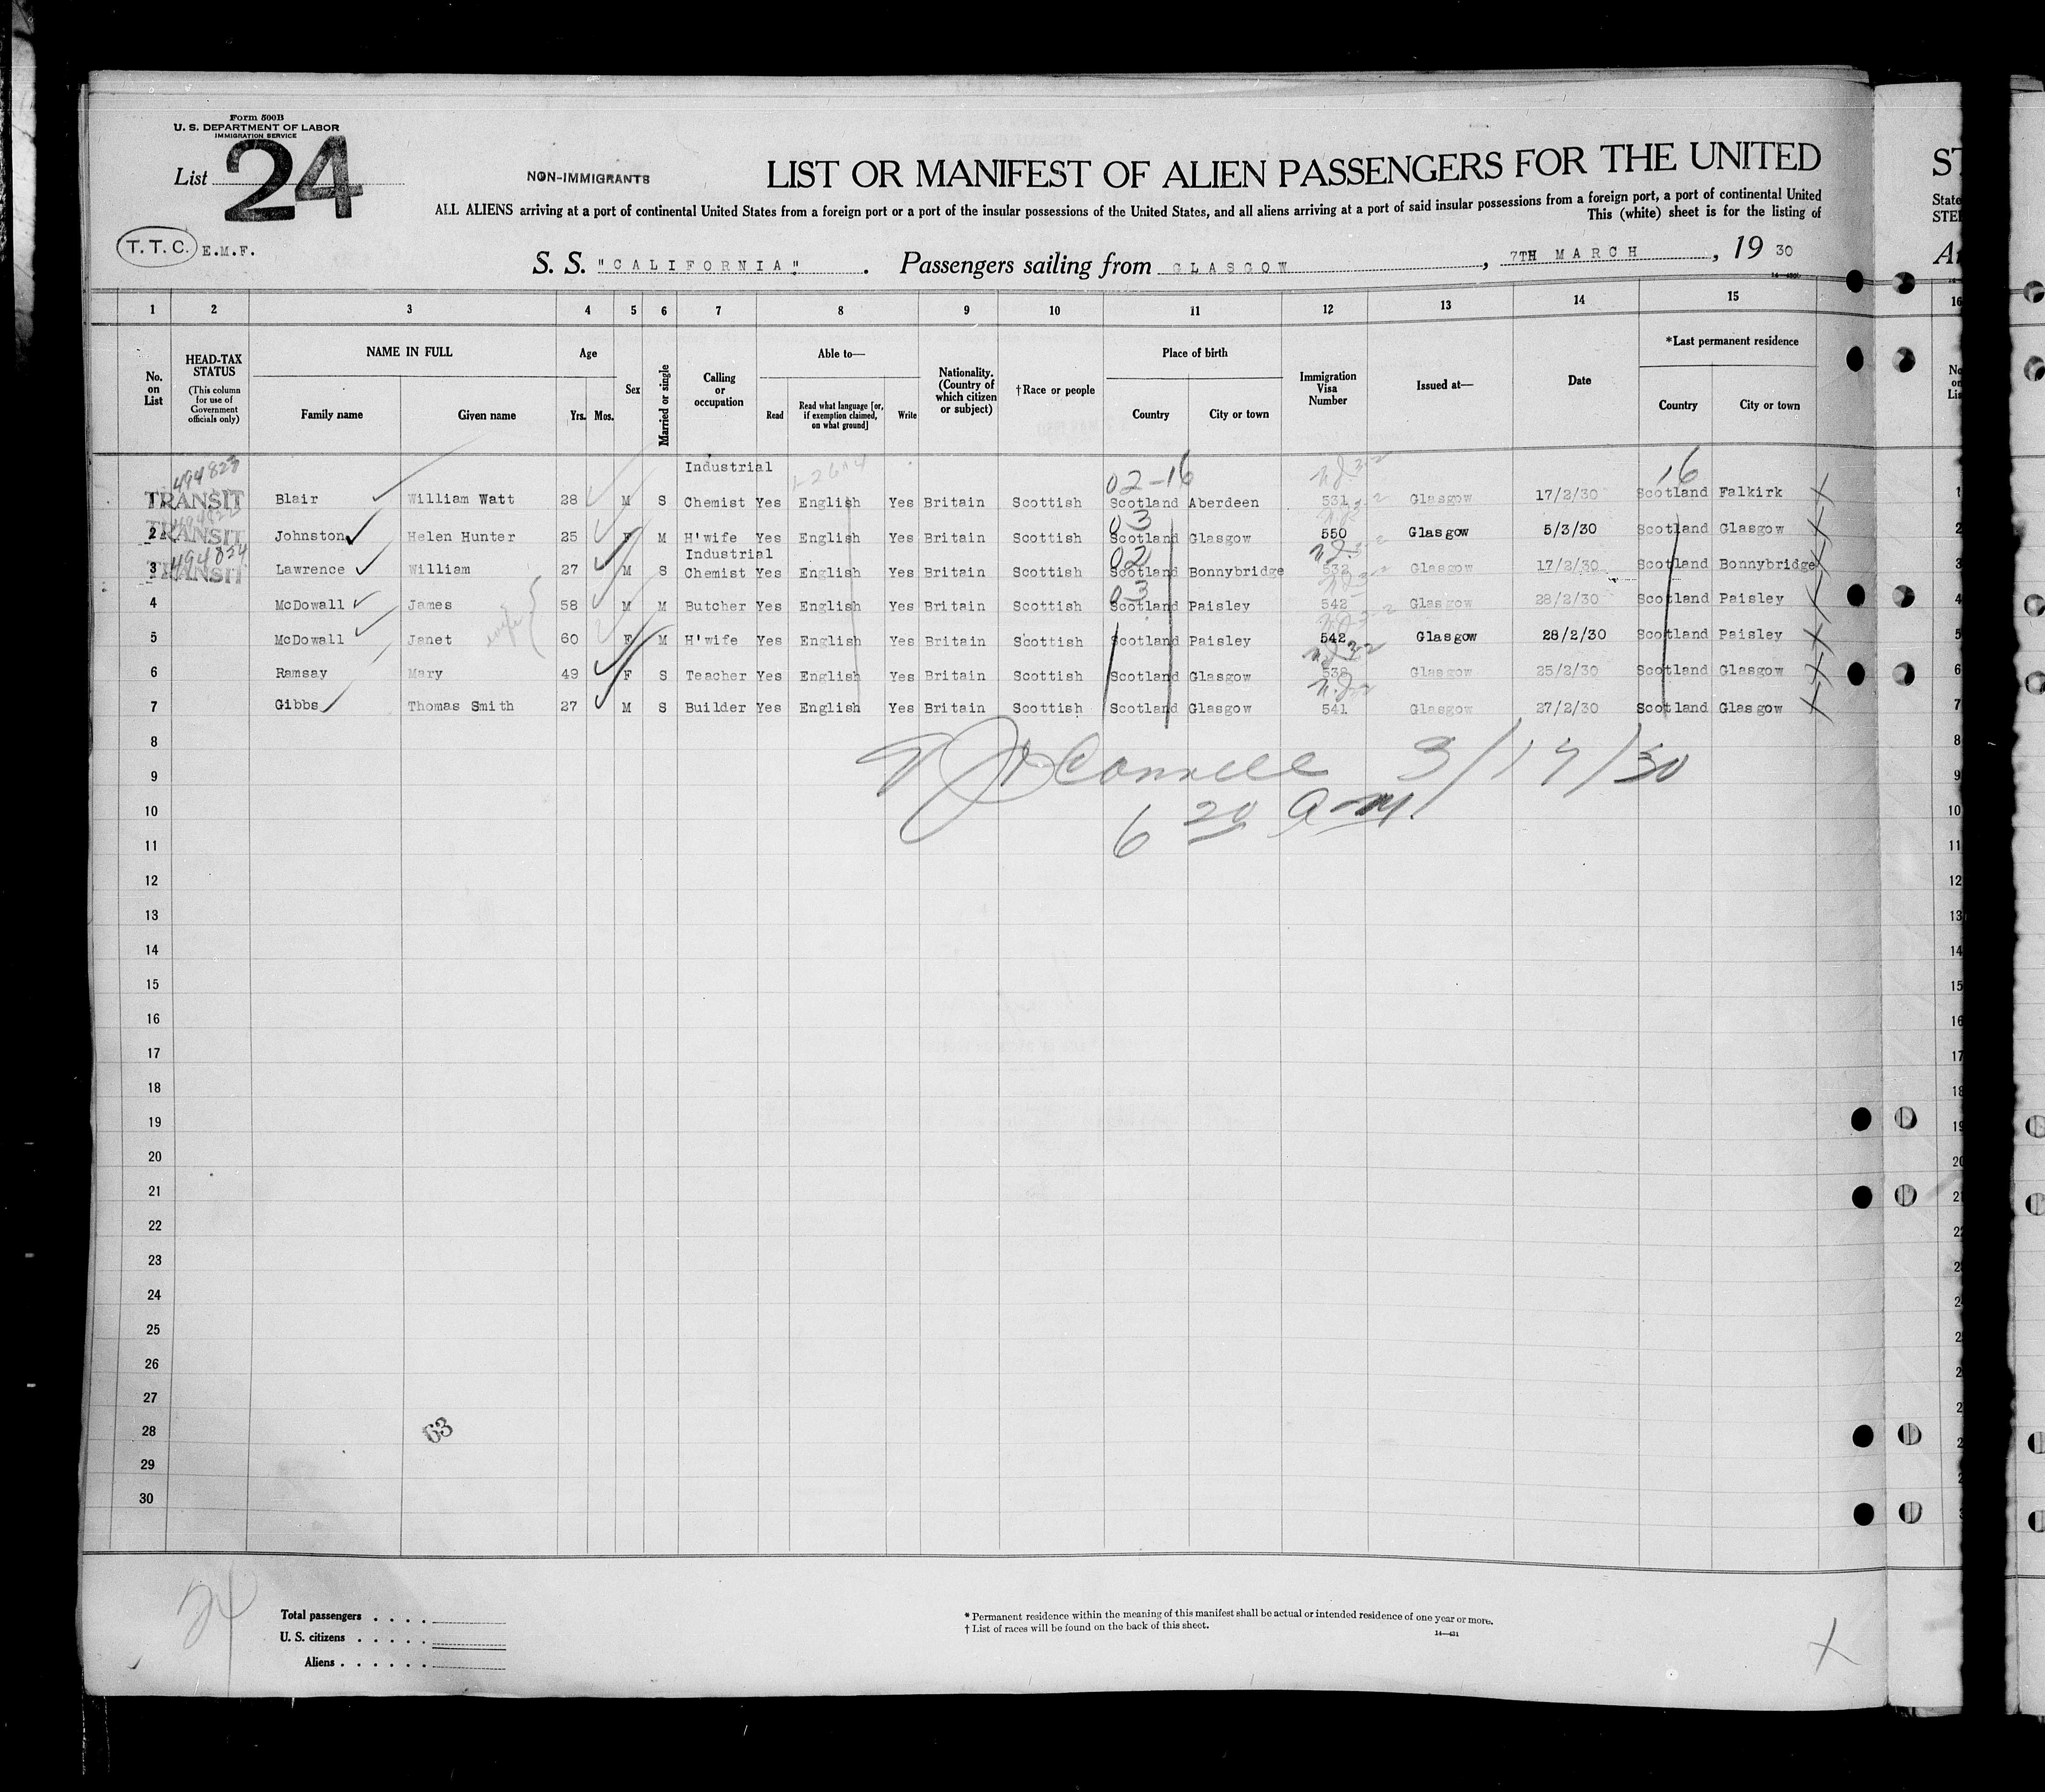 Form 500B
U. S. DEPARTMENT OF LABOR
IMMIGRATION SERVICE
List 24
NON-IMMIGRANTS
LIST OR MANIFEST OF ALIEN PASSENGERS FOR THE UNITED
ALL ALIENS arriving at a port of continental United States from a foreign port or a port of the insular possessions of the United States, and all aliens arriving at a port of said insular possessions from a foreign port, a port of continental United
This (white) sheet is for the listing of
T.T.C. E.M.F.
S. S. "CALIFORNIA". Passengers sailing from GLASGOW, 7TH MARCH, 19 30
1 2 3 4 5 6 7 8 9 10 11 12 13 14 15 16
No. on List
HEAD-TAX STATUS (This column for use of Government officials only)
NAME IN FULL
Family name Given name
Age
Yrs. Mos.
Sex
Married or single
Calling or occupation
Able to—
Read Read what language [or, if exemption claimed, on what ground] Write
Nationality. (Country of which citizen or subject)
†Race or people
Place of birth
Country City or town
Immigration Visa Number
Issued at—
Date
*Last permanent residence
Country City or town
494823 Industrial 02-16 16
TRANSIT Blair William Watt 28 M S Chemist Yes English Yes Britain Scottish Scotland Aberdeen 531 Glasgow 17/2/30 Scotland Falkirk
03
2 TRANSIT Johnston Helen Hunter 25 F M H'wife Yes English Yes Britain Scottish Scotland Glasgow 550 Glasgow 5/3/30 Scotland Glasgow
494824 Industrial 02
3 TRANSIT Lawrence William 27 M S Chemist Yes English Yes Britain Scottish Scotland Bonnybridge 532 Glasgow 17/2/30 Scotland Bonnybridge
03
4 McDowall James 58 M M Butcher Yes English Yes Britain Scottish Scotland Paisley 542 Glasgow 28/2/30 Scotland Paisley
wife
5 McDowall Janet 60 F M H'wife Yes English Yes Britain Scottish Scotland Paisley 542 Glasgow 28/2/30 Scotland Paisley
6 Ramsay Mary 49 F S Teacher Yes English Yes Britain Scottish Scotland Glasgow 538 Glasgow 25/2/30 Scotland Glasgow
7 Gibbs Thomas Smith 27 M S Builder Yes English Yes Britain Scottish Scotland Glasgow 541 Glasgow 27/2/30 Scotland Glasgow
8
3/17/30
9
10
6 20 a.m.
11
12
13
14
15
16
17
18
19
20
21
22
23
24
25
26
27
28 63
29
30
24
Total passengers . . . .
U. S. citizens . . . . .
Aliens . . . . . .
* Permanent residence within the meaning of this manifest shall be actual or intended residence of one year or more.
† List of races will be found on the back of this sheet.
14—431
X